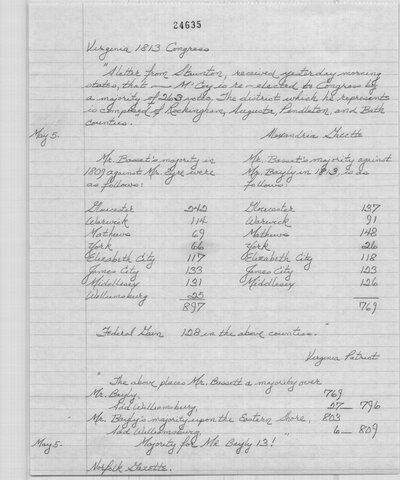 24635
Virginia 1813 Congress
"A letter from Staunton, received yesterday morning
states, that —— McCoy is re-elected to Congress by
a majority of 263 votes. The district which he represents
is composed of Rockingham, Augusta, Pendleton, and Bath
counties.
May 5. Alexandria Gazette
Mr. Basset's majority in Mr. Basset's majority against
1809 against Mr. Eyre were Mr. Bayly in 1813, is as
as follows: follows:
Gloucester 242 Gloucester 137
Warwick 114 Warwick 91
Mathews 69 Mathews 148
York 66 York 26
Elizabeth City 117 Elizabeth City 118
James City 133 James City 123
Middlesex 131 Middlesex 126
Williamsburg 25
897 769
Federal Gain 128 in the above counties."
Virginia Patriot
"The above places Mr. Bassett a majority over
Mr. Bayly, 769
Add Williamsburg, 27 — 796
Mr. Bayly's majority upon the Eastern Shore, 803
Add Williamsburg, " 6 — 809
May 5. Majority for Mr Bayly 13!
Norfolk Gazette.